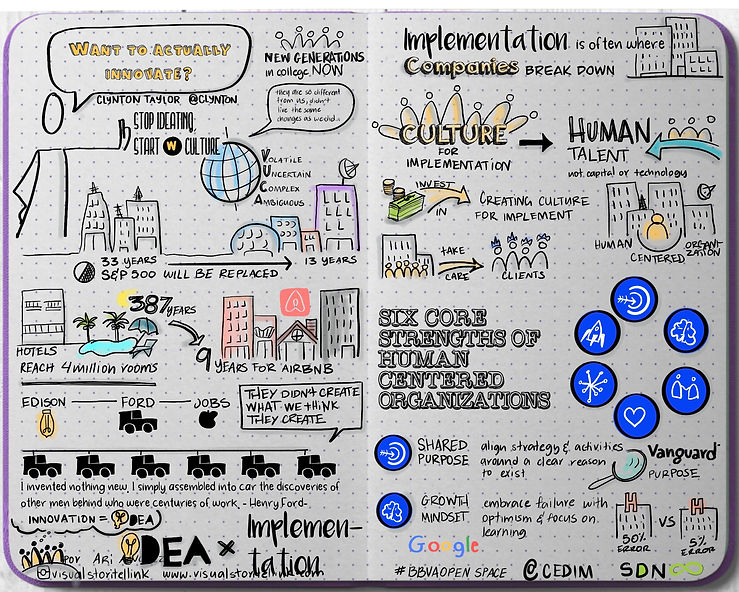 WANT TO ACTUALLY
INNOVATE?
CLYNTON TAYLOR @CLYNTON
STOP IDEATING,
START W CULTURE
NEW GENERATIONS
in college NOW
they are so different
from us, didn't
live the same
changes as we did...
VOLATILE
UNCERTAIN
COMPLEX
AMBIGUOUS
33 YEARS
13 YEARS
S&P 500 WILL BE REPLACED
387 YEARS
HOTELS
REACH 4 million rooms
9 YEARS FOR AIRBNB
EDISON
FORD
JOBS
THEY DIDN'T CREATE
WHAT WE THINK
THEY CREATE.
I invented nothing new, I simply assembled into car the discoveries of
other men behind who were centuries of work. - Henry Ford-
INNOVATION = IDEA
IDEA x Implemen-
tation
por Ari
visualstoritellink www.visualstoritellink.com
Implementation is often where
Companies BREAK DOWN
CULTURE
FOR
IMPLEMENTATION
HUMAN
TALENT
not capital or technology
INVEST
IN
CREATING CULTURE
FOR IMPLEMENT
TAKE
CARE
CLIENTS
HUMAN
CENTERED
ORGANI-
ZATION
SIX CORE
STRENGTHS OF
HUMAN
CENTERED
ORGANIZATIONS
SHARED
PURPOSE
align strategy & activities
around a clear reason
to exist
Vanguard
PURPOSE
GROWTH
MINDSET
embrace failure with
optimism & focus on
learning
Google
H
50%
ERROR
VS
H
5%
ERROR
# BBVAOPEN SPACE @CEDIM SDN